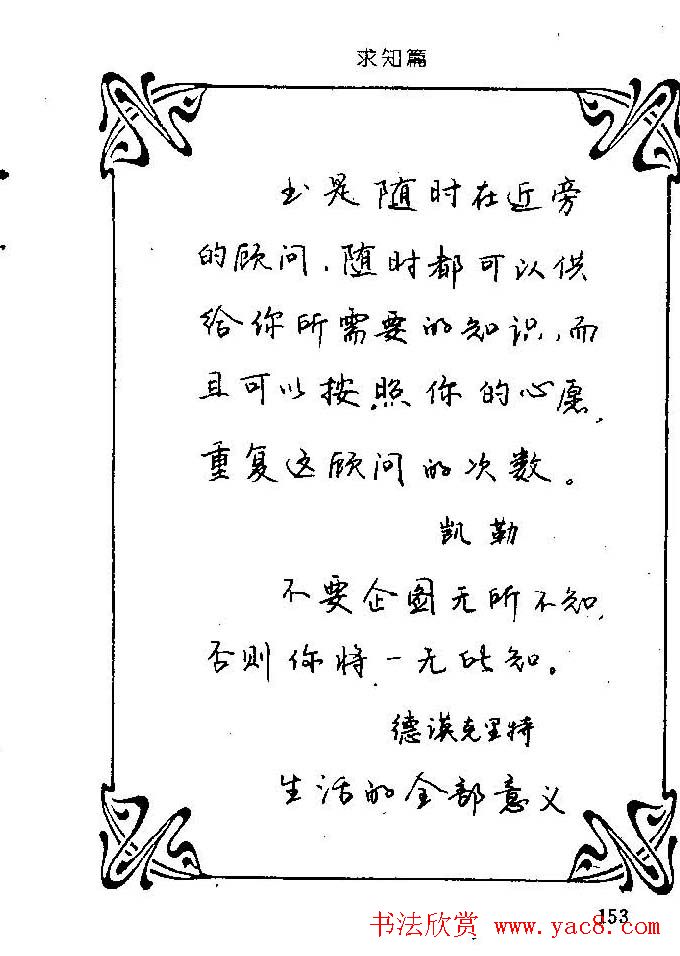 求知篇
书是随时在近旁
的顾问,随时都可以供
给你所需要的知识,而
且可以按照你的心愿,
重复这顾问的次数。
凯勒
不要企图无所不知,
否则你将一无所知。
德谟克里特
生活的全部意义
153
书法欣赏 www.yac8.com